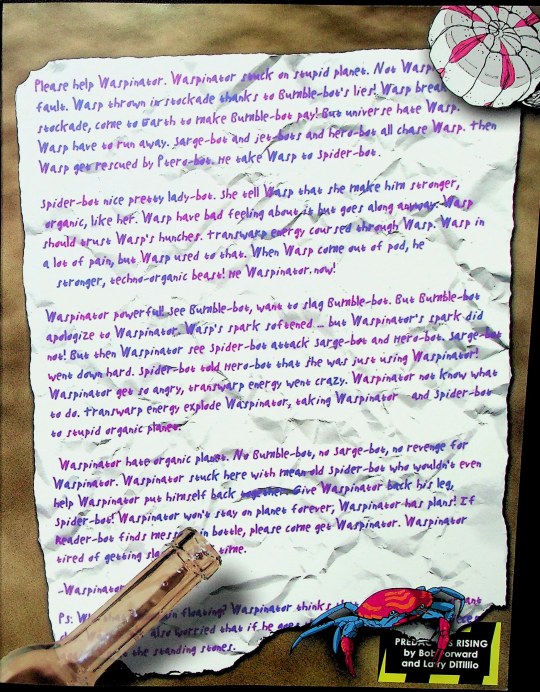 Please help Waspinator. Waspinator stuck on stupid planet. Not Wasp
fault. Wasp thrown in stockade thanks to Bumble-bot's lies! Wasp brea
stockade, come to Earth to make Bumble-bot pay! But universe hate Wasp.
Wasp have to run away. Sarge-bot and jet-bots and hero-bot all chase Wasp. Then
Wasp get rescued by Ptero-bot. He take Wasp to Spider-bot.
Spider-bot nice pretty lady-bot. She tell Wasp that she make him stronger,
organic, like her. Wasp have bad feeling about it but goes along anyway. Wasp
should trust Wasp's hunches. Transwarp energy coursed through Wasp. Wasp in
a lot of pain, but Wasp used to that. When Wasp come out of pod, he
stronger, techno-organic beast! He Waspinator now!
Waspinator powerful! See Bumble-bot, want to slag Bumble-bot. But Bumble-bot
apologize to Waspinator. Wasp's spark softened ... but Waspinator's spark did
not! But then Waspinator see Spider-bot attack Sarge-bot and Hero-bot. Sarge-bot
went down hard. Spider-bot told Hero-bot that she was just using Waspinator!
Waspinator get so angry, transwarp energy went crazy. Waspinator not know what
to do. Transwarp energy explode Waspinator, taking Waspinator and Spider-bot
to stupid organic planet.
Waspinator hate organic planet. No Bumble-bot, no Sarge-bot, no revenge for
Waspinator. Waspinator stuck here with mean old Spider-bot who wouldn't even
help Waspinator put himself back together. Give Waspinator back his leg,
Spider-bot! Waspinator won't stay on planet forever, Waspinator has plans! If
Reader-bot finds mess in bottle, please come get Waspinator. Waspinator
tired of getting sla time.
-Waspinator
Ps: W in floating? Waspinator thinks tha ant
also worried that if he goes
the standing stones.
PREDAC S RISING
by Bob Forward
and Larry DiTillio